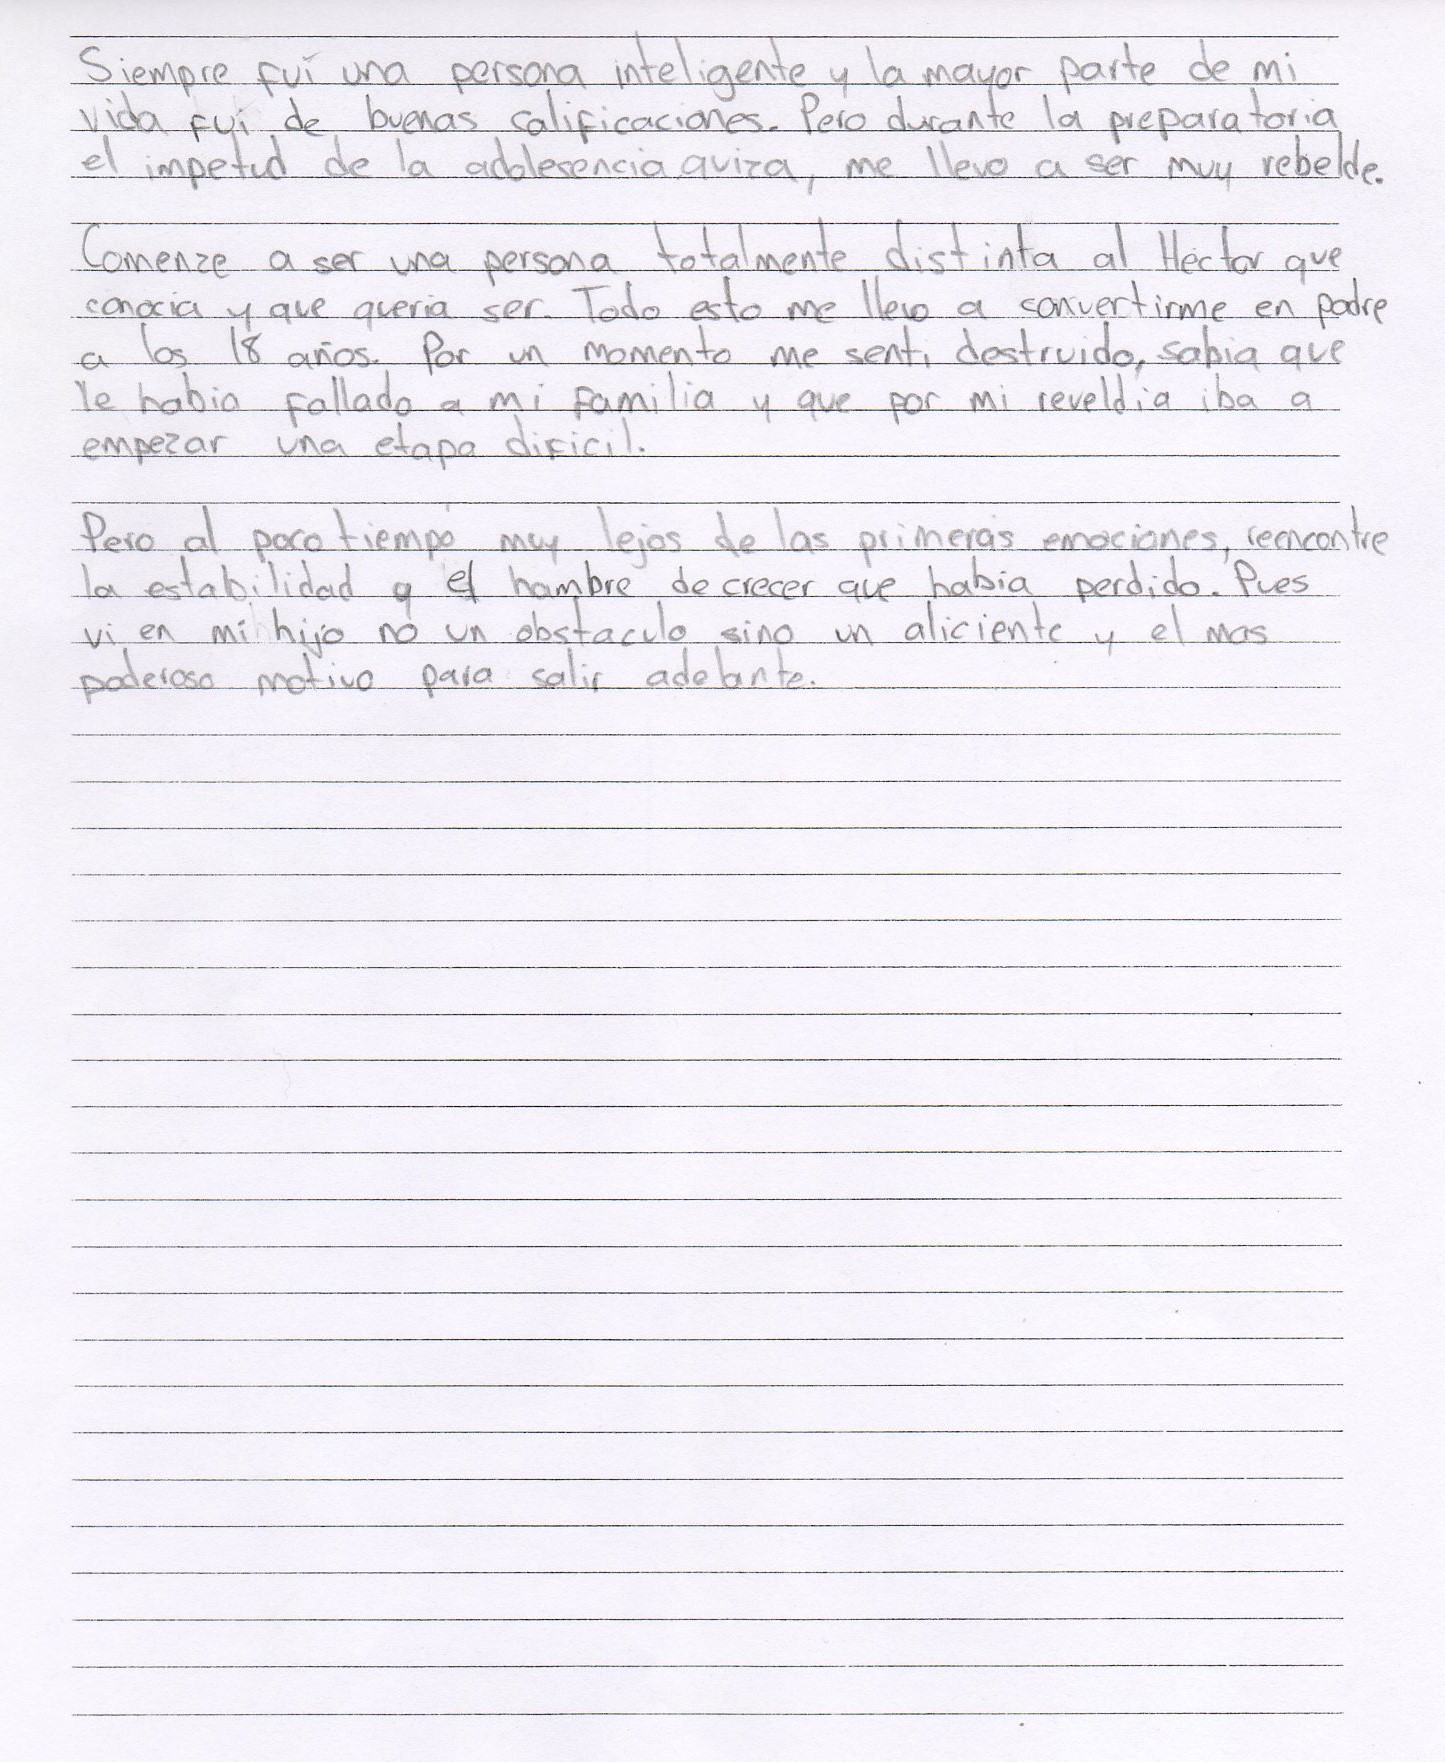 Siempre fui una persona inteligente y la mayor parte de mi
vida fui de buenas calificaciones. Pero durante la preparatoria
el impetud de la adolesencia quiza, me llevo a ser muy rebelde.
Comenze a ser una persona totalmente distinta al Hector que
conocia y que queria ser. Todo esto me llevo a convertirme en padre
a los 18 años. Por un momento me senti destruido, sabia que
le habia fallado a mi familia y que por mi reveldia iba a
empezar una etapa dificil.
Pero al poco tiempo muy lejos de las primeras emociones, reencontre
la estabilidad y el hambre de crecer que habia perdido. Pues
vi en mi hijo no un obstaculo sino un aliciente y el mas
poderoso motivo para salir adelante.